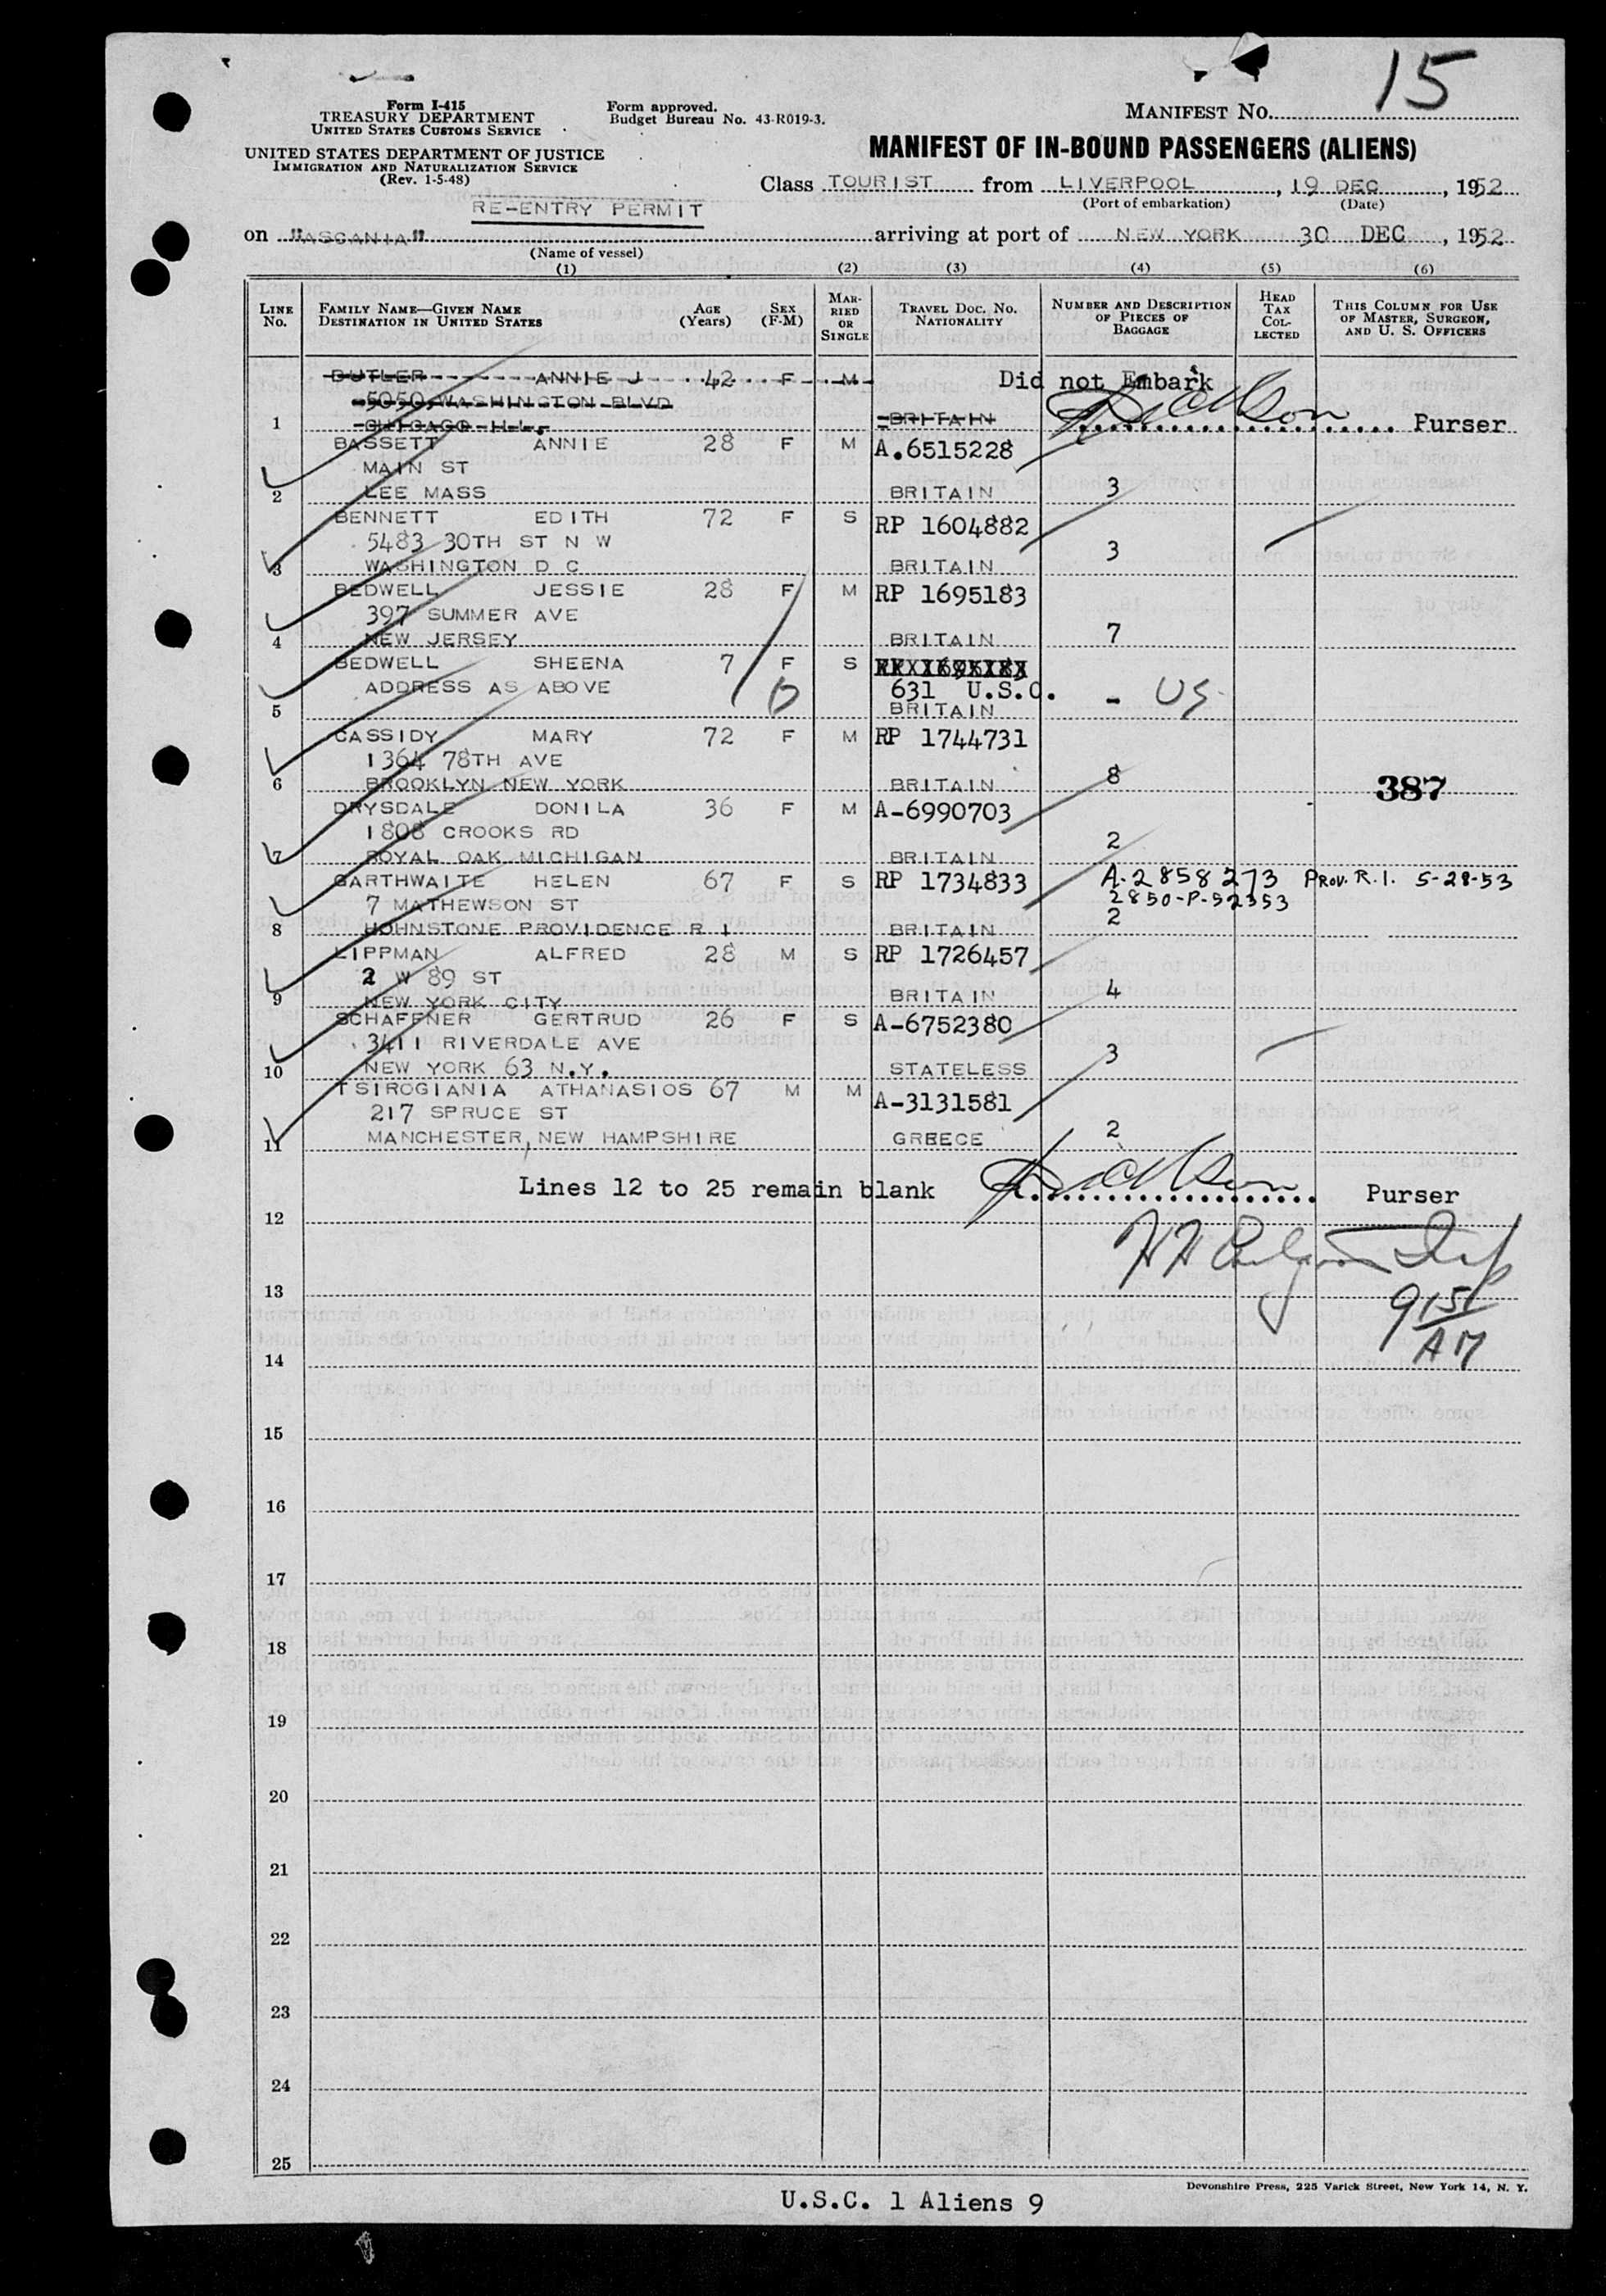 15
Form I-415
TREASURY DEPARTMENT
UNITED STATES CUSTOMS SERVICE
Form approved.
Budget Bureau No. 43-R019-3.
MANIFEST NO.
UNITED STATES DEPARTMENT OF JUSTICE
IMMIGRATION AND NATURALIZATION SERVICE
(Rev. 1-5-48)
MANIFEST OF IN-BOUND PASSENGERS (ALIENS)
Class TOURIST from LIVERPOOL, 19 DEC, 1952
(Port of embarkation) (Date)
RE-ENTRY PERMIT
on "ASCANIA" arriving at port of NEW YORK 30 DEC, 1952
(Name of vessel)
(1) (2) (3) (4) (5) (6)
LINE No. FAMILY NAME—GIVEN NAME DESTINATION IN UNITED STATES AGE (Years) SEX (F-M) MARRIED OR SINGLE TRAVEL DOC. NO. NATIONALITY NUMBER AND DESCRIPTION OF PIECES OF BAGGAGE HEAD TAX COLLECTED THIS COLUMN FOR USE OF MASTER, SURGEON, AND U. S. OFFICERS
BUTLER ANNIE J 42 F M Did not Embark
5050 WASHINGTON BLVD
1 CHICAGO ILL. BRITAIN Purser
BASSETT ANNIE 28 F M A.6515228
MAIN ST
2 LEE MASS BRITAIN 3
BENNETT EDITH 72 F S RP 1604882
5483 30TH ST N W
3 WASHINGTON D C BRITAIN 3
BEDWELL JESSIE 28 F M RP 1695183
397 SUMMER AVE
4 NEW JERSEY BRITAIN 7
BEDWELL SHEENA 7 F S
ADDRESS AS ABOVE 631 U.S.C. - US
5 BRITAIN
CASSIDY MARY 72 F M RP 1744731
1364 78TH AVE
6 BROOKLYN NEW YORK BRITAIN 8 387
DRYSDALE DONILA 36 F M A-6990703
1808 CROOKS RD
7 ROYAL OAK MICHIGAN BRITAIN 2
GARTHWAITE HELEN 67 F S RP 1734833 A-2858273 PROV. R.I. 5-28-53
7 MATHEWSON ST 2850-P-52353
8 JOHNSTONE PROVIDENCE R I BRITAIN 2
LIPPMAN ALFRED 28 M S RP 1726457
2 W 89 ST
9 NEW YORK CITY BRITAIN 4
SCHAFFNER GERTRUD 26 F S A-6752380
3411 RIVERDALE AVE
10 NEW YORK 63 N.Y. STATELESS 3
TSIROGIANIA ATHANASIOS 67 M M A-3131581
217 SPRUCE ST
11 MANCHESTER, NEW HAMPSHIRE GREECE 2
Lines 12 to 25 remain blank Purser
12
13
915
AM
14
15
16
17
18
19
20
21
22
23
24
25
Devonshire Press, 225 Varick Street, New York 14, N. Y.
U.S.C. 1 Aliens 9